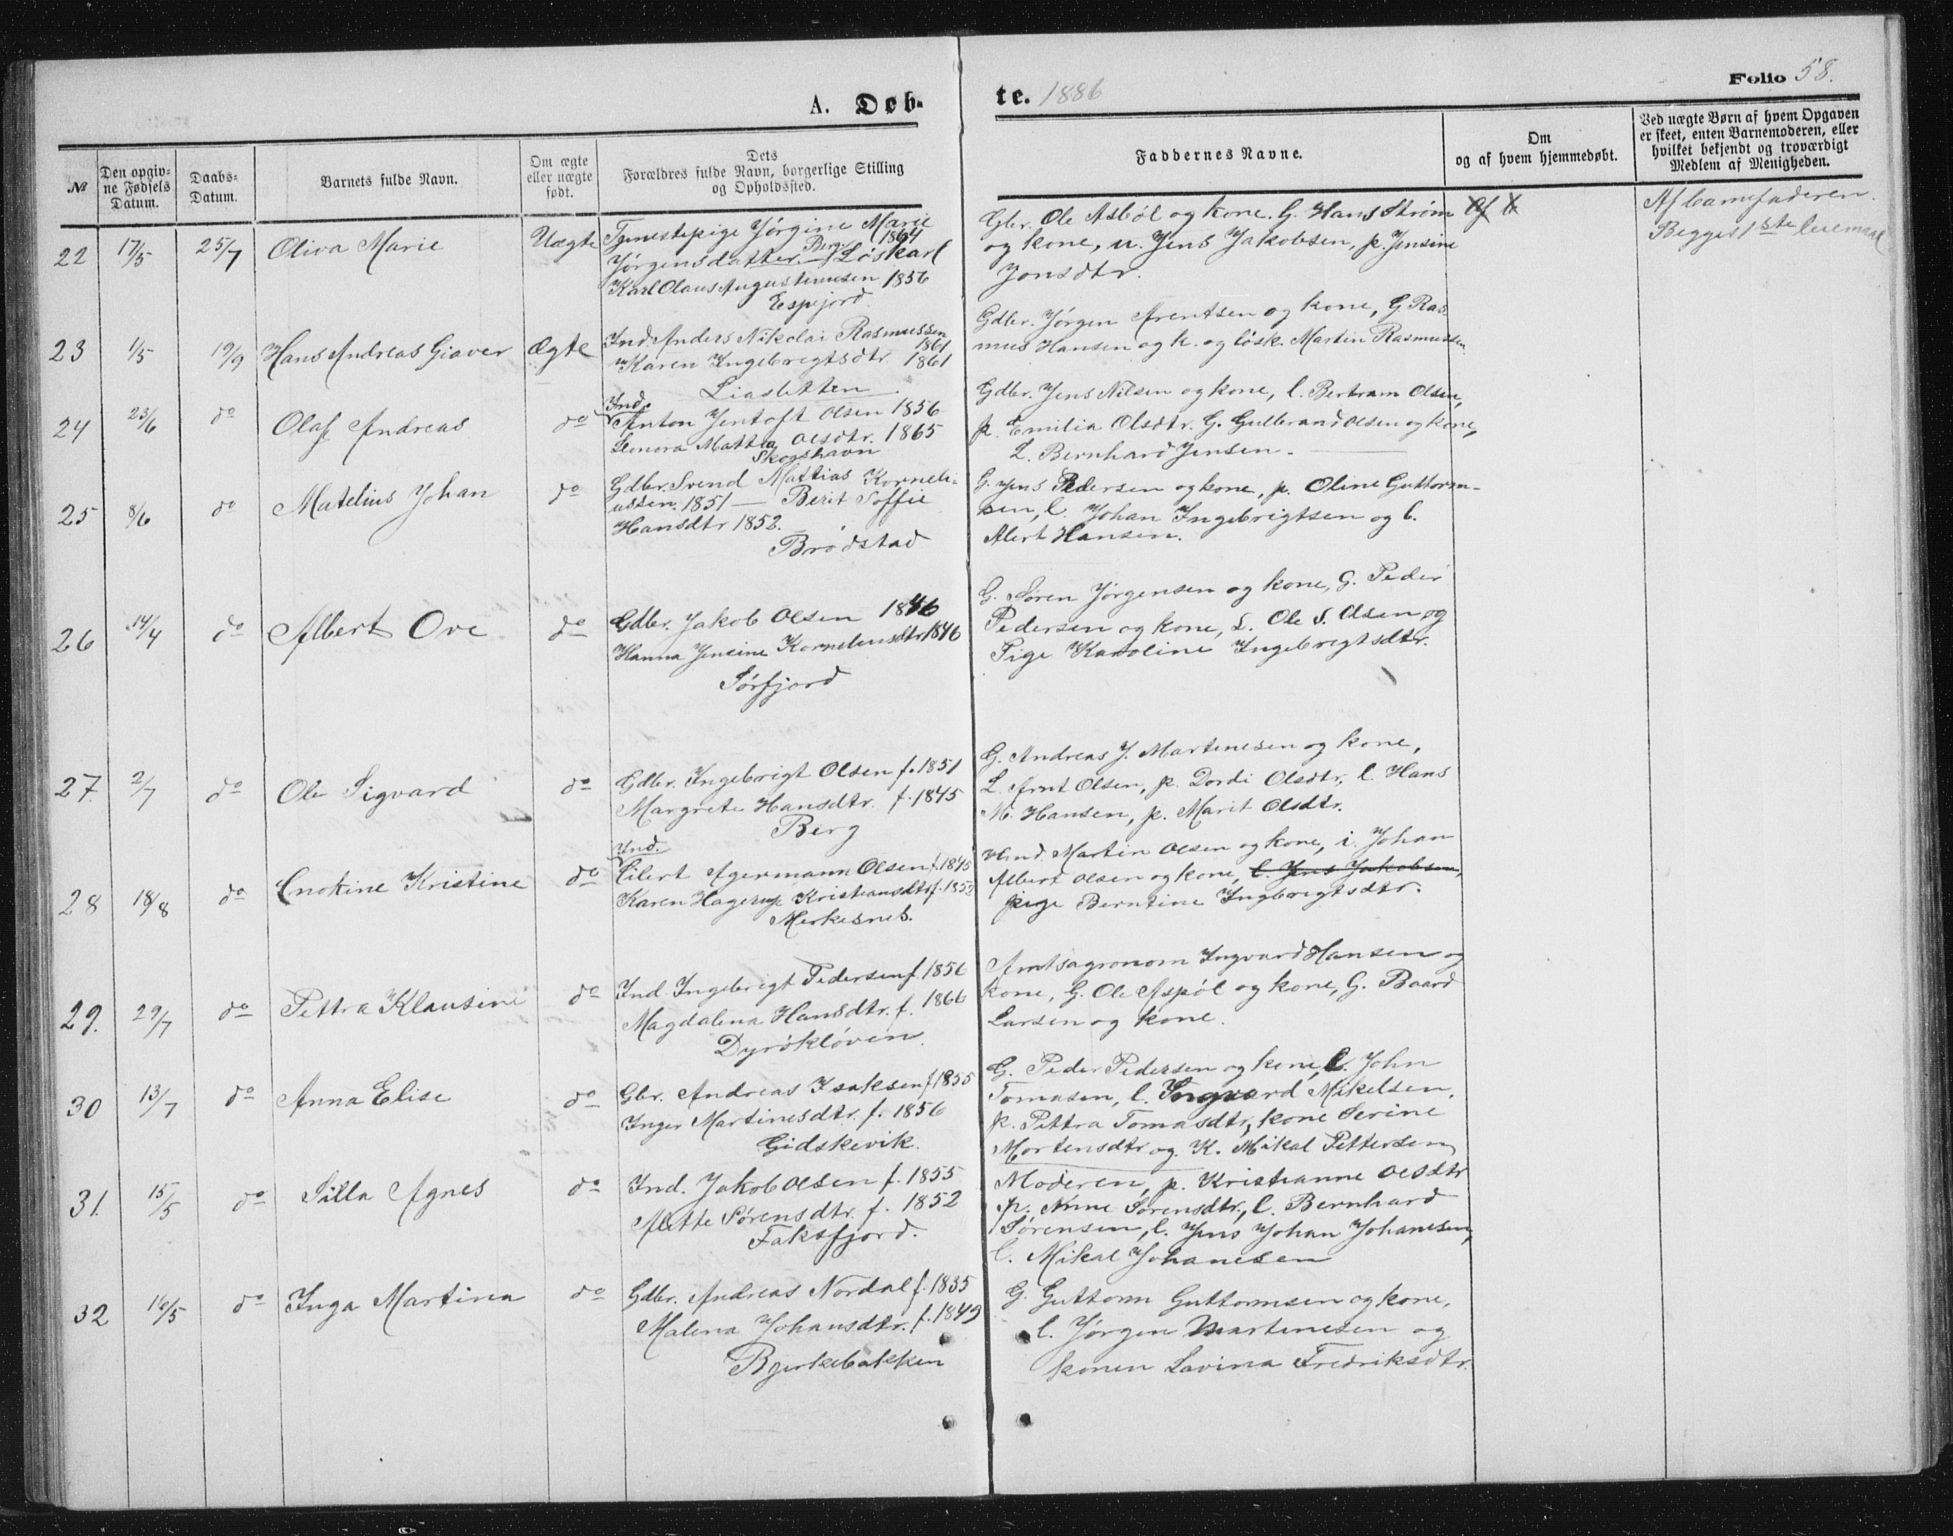 Folio 58.
A. Døb-
te. 1886
№
Den opgiv-
ne Fødsels
Datum.
Daabs-
Datum.
Barnets fulde Navn.
Om ægte
eller uægte
født.
Dets
Forældres fulde Navn, borgerlige Stilling
og Opholdssted.
Faddernes Navne.
Om
og af hvem hjemmedøbt.
Ved uægte Børn af hvem Opgaven
er skeet, enten Barnemoderen, eller
hvilket bekjendt og troværdigt
Medlem af Menigheden.
22 17/5 25/7 Oliva Marie Uægte
Tjenestepige Jørgine Marie
Jørgensdatter Berg 1864 Løskarl
Karl Olaus Augustinusen 1856
Espejord
Gbr. Ole Asbøl og kone. G. Hans Strøm
og kone, u. Jens Jakobsen, p. Jensine
Jonsdtr.
Af barnefaderen.
Begges 1ste leiermaal
23 1/5 19/9 Hans Andreas Giæver Ægte
Ind. Anders Nikolai Rasmussen
1861
Karen Ingebrigtsdtr. 1861
Liasletten
Gdbr. Jørgen Arentsen og kone, G. Ras-
mus Hansen og k. og løsk. Martin Rasmussen
24 23/6 do Olaf Andreas do
Ind.
Anton Jentoft Olsen 1856
Lenora Mattea Olsdtr. 1865
Skogshavn
Gdbr. Jens Nilsen og kone, l. Bertram Olsen,
p. Emilia Olsdtr. G. Gulbrand Olsen og kone,
L. Bernhard Jensen.
25 8/6 do Matelius Johan do
Gdbr. Svend Mattias Korneli-
ussen. 1851 — Berit Soffie
Hansdtr 1852.
Brødstad
G. Jens Pedersen og kone, p. Oline Guttorm-
sen, l. Johan Ingebrigtsen og l.
Alert Hansen.
26 14/4 do Albert Ove do
Gdbr. Jakob Olsen 1846
Hanna Jensine Korneliusdtr 1846
Sørfjord
G. Søren Jørgensen og kone, G. Peder
Pedersen og kone, L. Ole S. Olsen og
Pige Karoline Ingebrigtsdtr.
27. 2/7 do Ole Sigvard do
Gdbr. Ingebrigt Olsen f. 1851
Margrete Hansdtr. f. 1845
Berg
G. Andreas J. Martinesen og kone,
L. Arnt Olsen, p. Dordi Olsdtr, l. Hans
N. Hansen, p. Marit Olsdtr.
28 18/8 do Enokine Kristine do
Ind.
Eilert Agermann Olsen f. 1845
Karen Hagerup Kristiansdtr f. 1852
Mirkesnes.
Ind. Martin Olsen og kone, i. Johan
Albert Olsen og kone, l. Jens Jakobsen,
pige Berntine Ingebrigtsdtr.
29. 29/7 do Pettra Klausine do
Ind. Ingebrigt Pedersen f. 1856
Magdalena Hansdtr. f. 1866
Dyrökløven.
Amtsagronom Ingvard Hansen og
kone, G. Ole Aspøl og kone, G. Baard
Larsen og kone.
30 13/7 do Anna Elise do
Gbr. Andreas Isaksen f 1855
Inger Martinesdtr. f. 1856
Gidskevik.
G. Peder Pedersen og kone, l. John
Tomasen, l. Ingvard Mikelsen,
p. Pettra Tomasdtr, kone Serine
Mortensdtr og K. Mikal Pettersen
31. 15/5 do Silla Agnes do
Ind. Jakob Olsen f. 1855
Mette Sørensdtr. f. 1852
Faksfjord.
Moderen, p. Kristianne Olsdtr
p. Anne Sørensdtr, l. Bernhard
Sørensen, l. Jens Johan Johanesen,
l. Mikal Johanesen
32 16/5 do Inga Martina do
Gdbr. Andreas Nordal f. 1835
Malena Johansdtr. f. 1849
Bjerkebakken
G. Guttorm Guttormsen og kone,
l. Jørgen Martinesen og
konen Lavina Fredriksdtr.